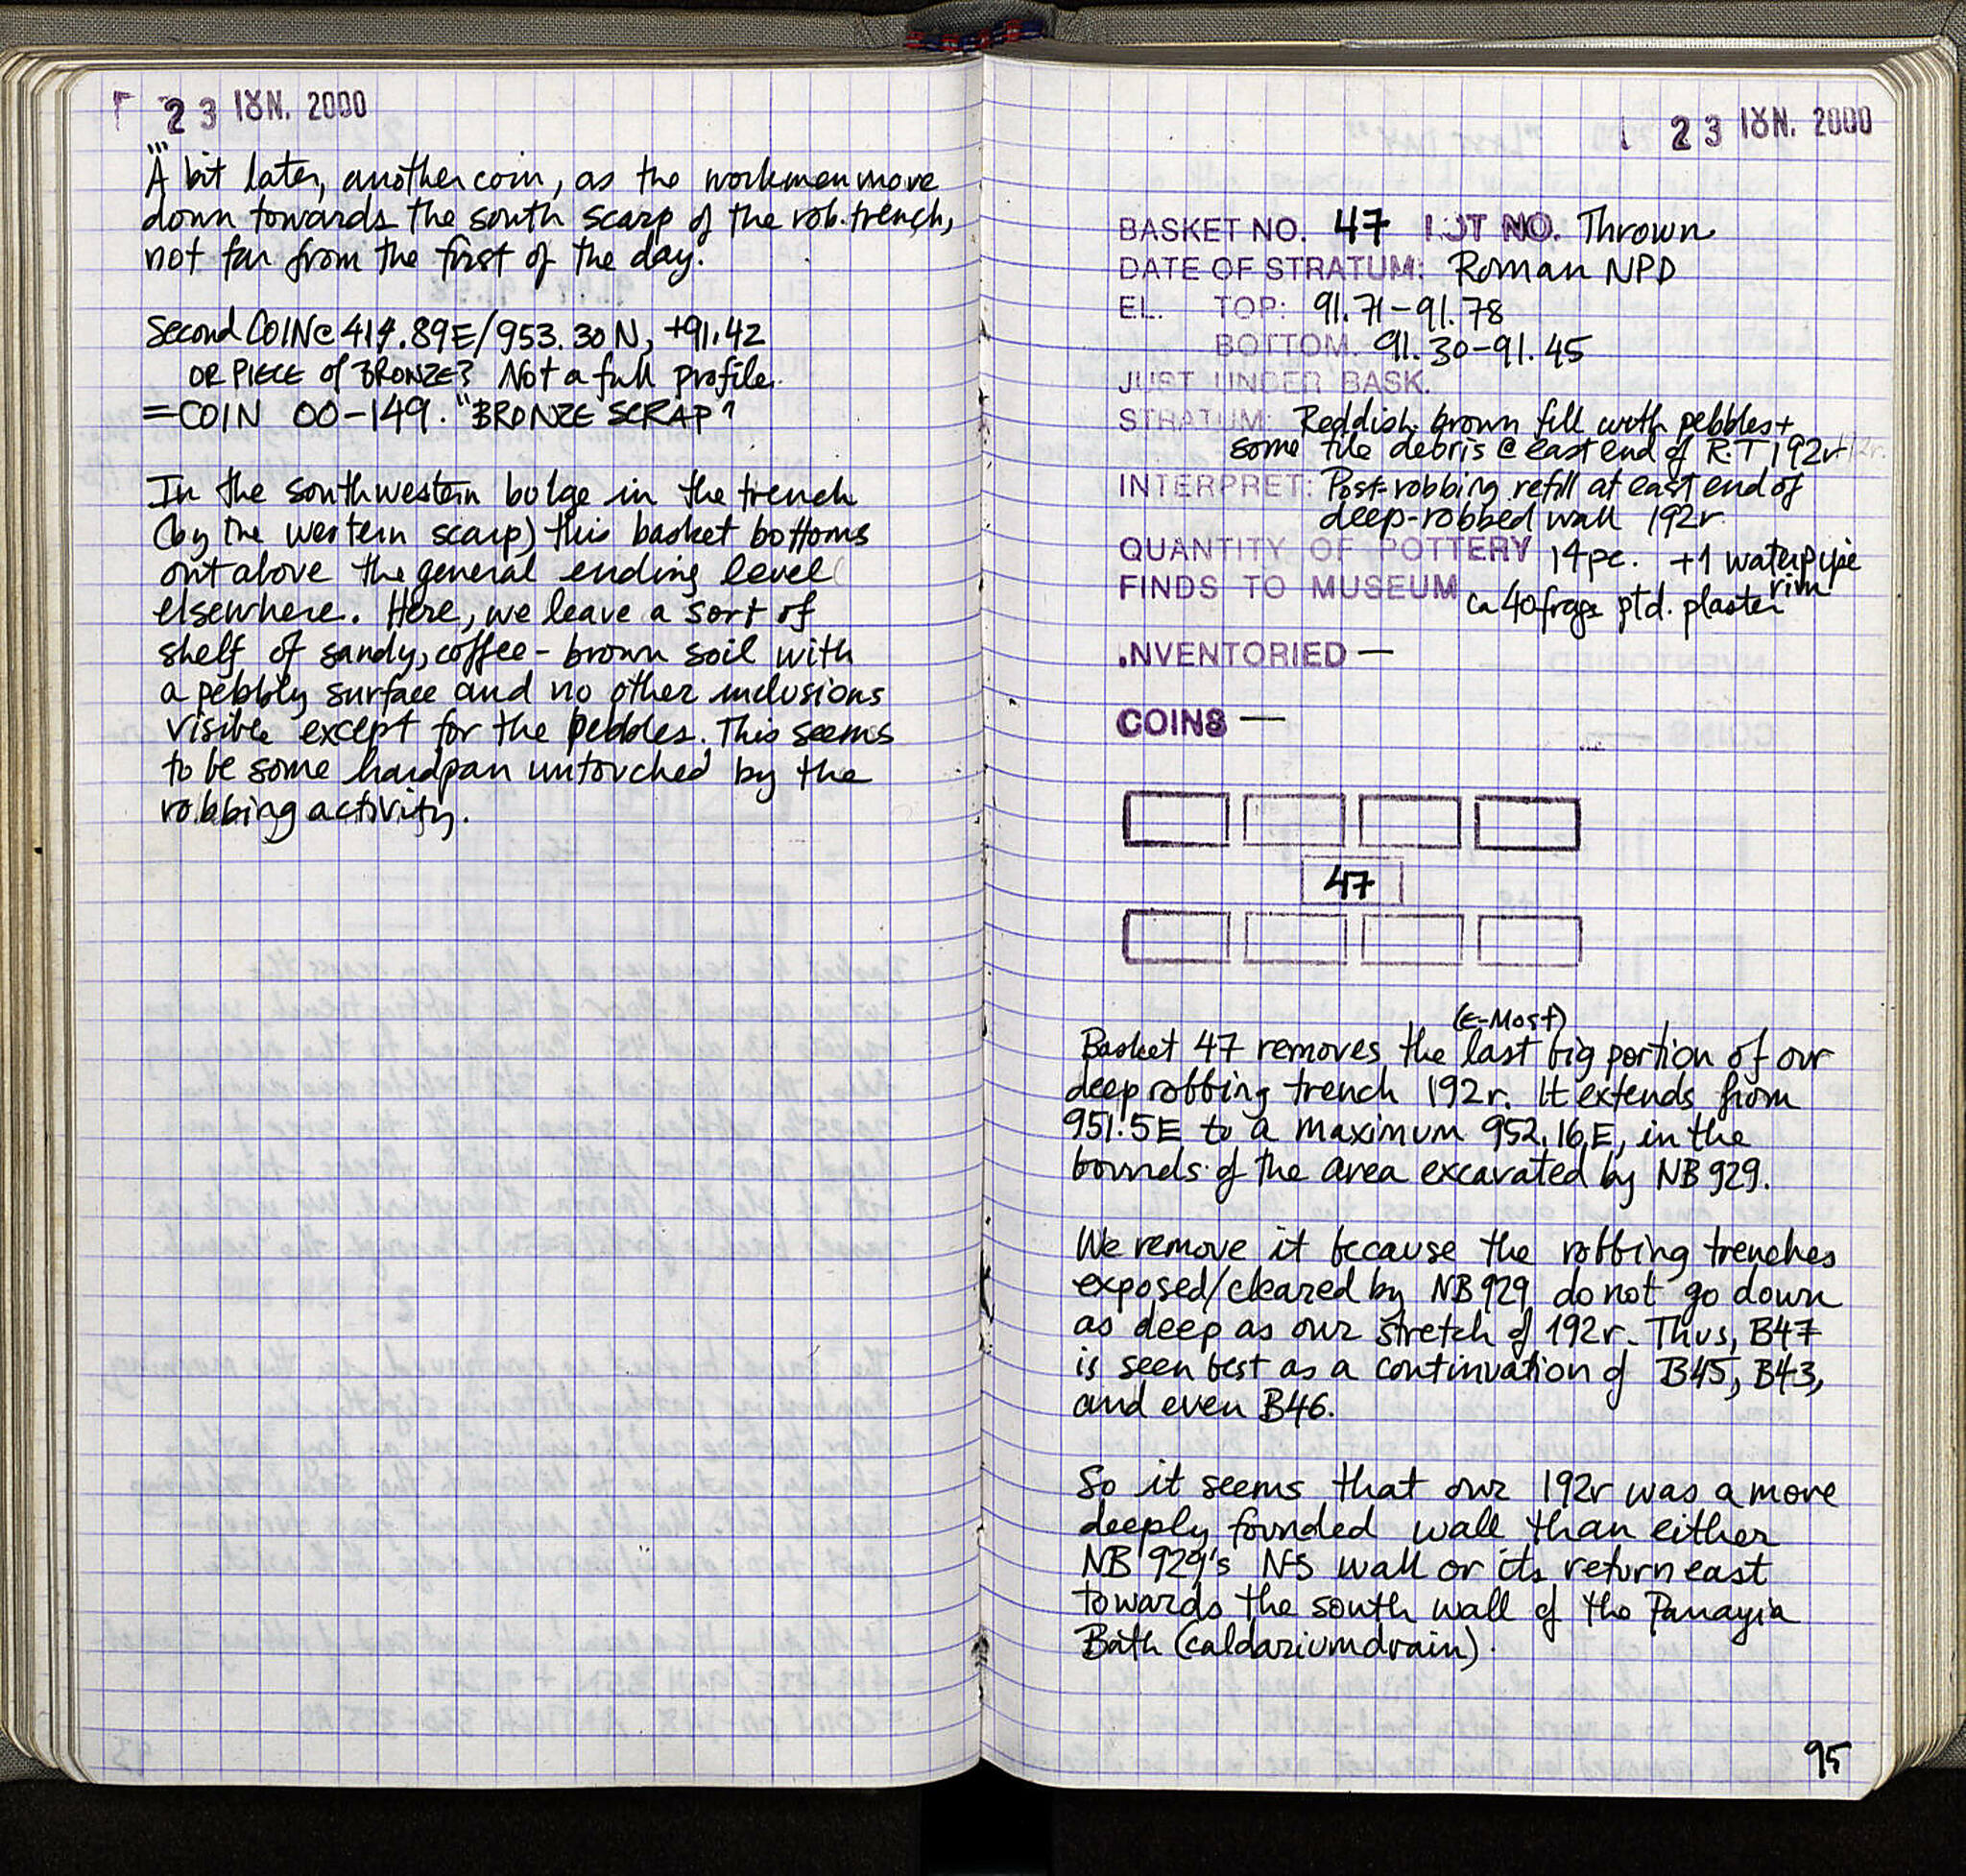 23 ΙȢΝ. 2000
"' A bit later, another coin, as the workmen move
down towards the south scarp of the rob. trench,
not far from the first of the day.
Second COIN @ 414.89E/953.30N, +91.42
OR PIECE of BRONZE? Not a full profile.
= COIN 00-149. "BRONZE SCRAP"
In the southwestern bulge in the trench
(by the western scarp) this basket bottoms
out above the general ending level
elsewhere. Here, we leave a sort of
shelf of sandy, coffee-brown soil with
a pebbly surface and no other inclusions
visible except for the pebbles. This seems
to be some hardpan untouched by the
robbing activity.
23 ΙȢΝ. 2000
BASKET NO. 47 LOT NO. Thrown
DATE OF STRATUM: Roman NPD
EL. TOP: 91.71-91.78
BOTTOM: 91.30-91.45
JUST UNDER BASK.
STRATUM: Reddish brown fill with pebbles +
some tile debris @ east end of R.T 192r
INTERPRET: Post-robbing refill at east end of
deep-robbed wall 192r
QUANTITY OF POTTERY 14pc. +1 waterpipe
rim
FINDS TO MUSEUM ca 40 frags ptd. plaster
INVENTORIED —
COINS —
47
(E-Most)
Basket 47 removes the last big portion of our
deep robbing trench 192r. It extends from
951.5E to a maximum 952.16E, in the
bounds of the area excavated by NB 929.
We remove it because the robbing trenches
exposed/cleared by NB 929 do not go down
as deep as our stretch of 192r. Thus, B47
is seen best as a continuation of B45, B43,
and even B46.
So it seems that our 192r was a more
deeply founded wall than either
NB 929's NS wall or its return east
towards the south wall of the Panayia
Bath (caldarium drain).
95